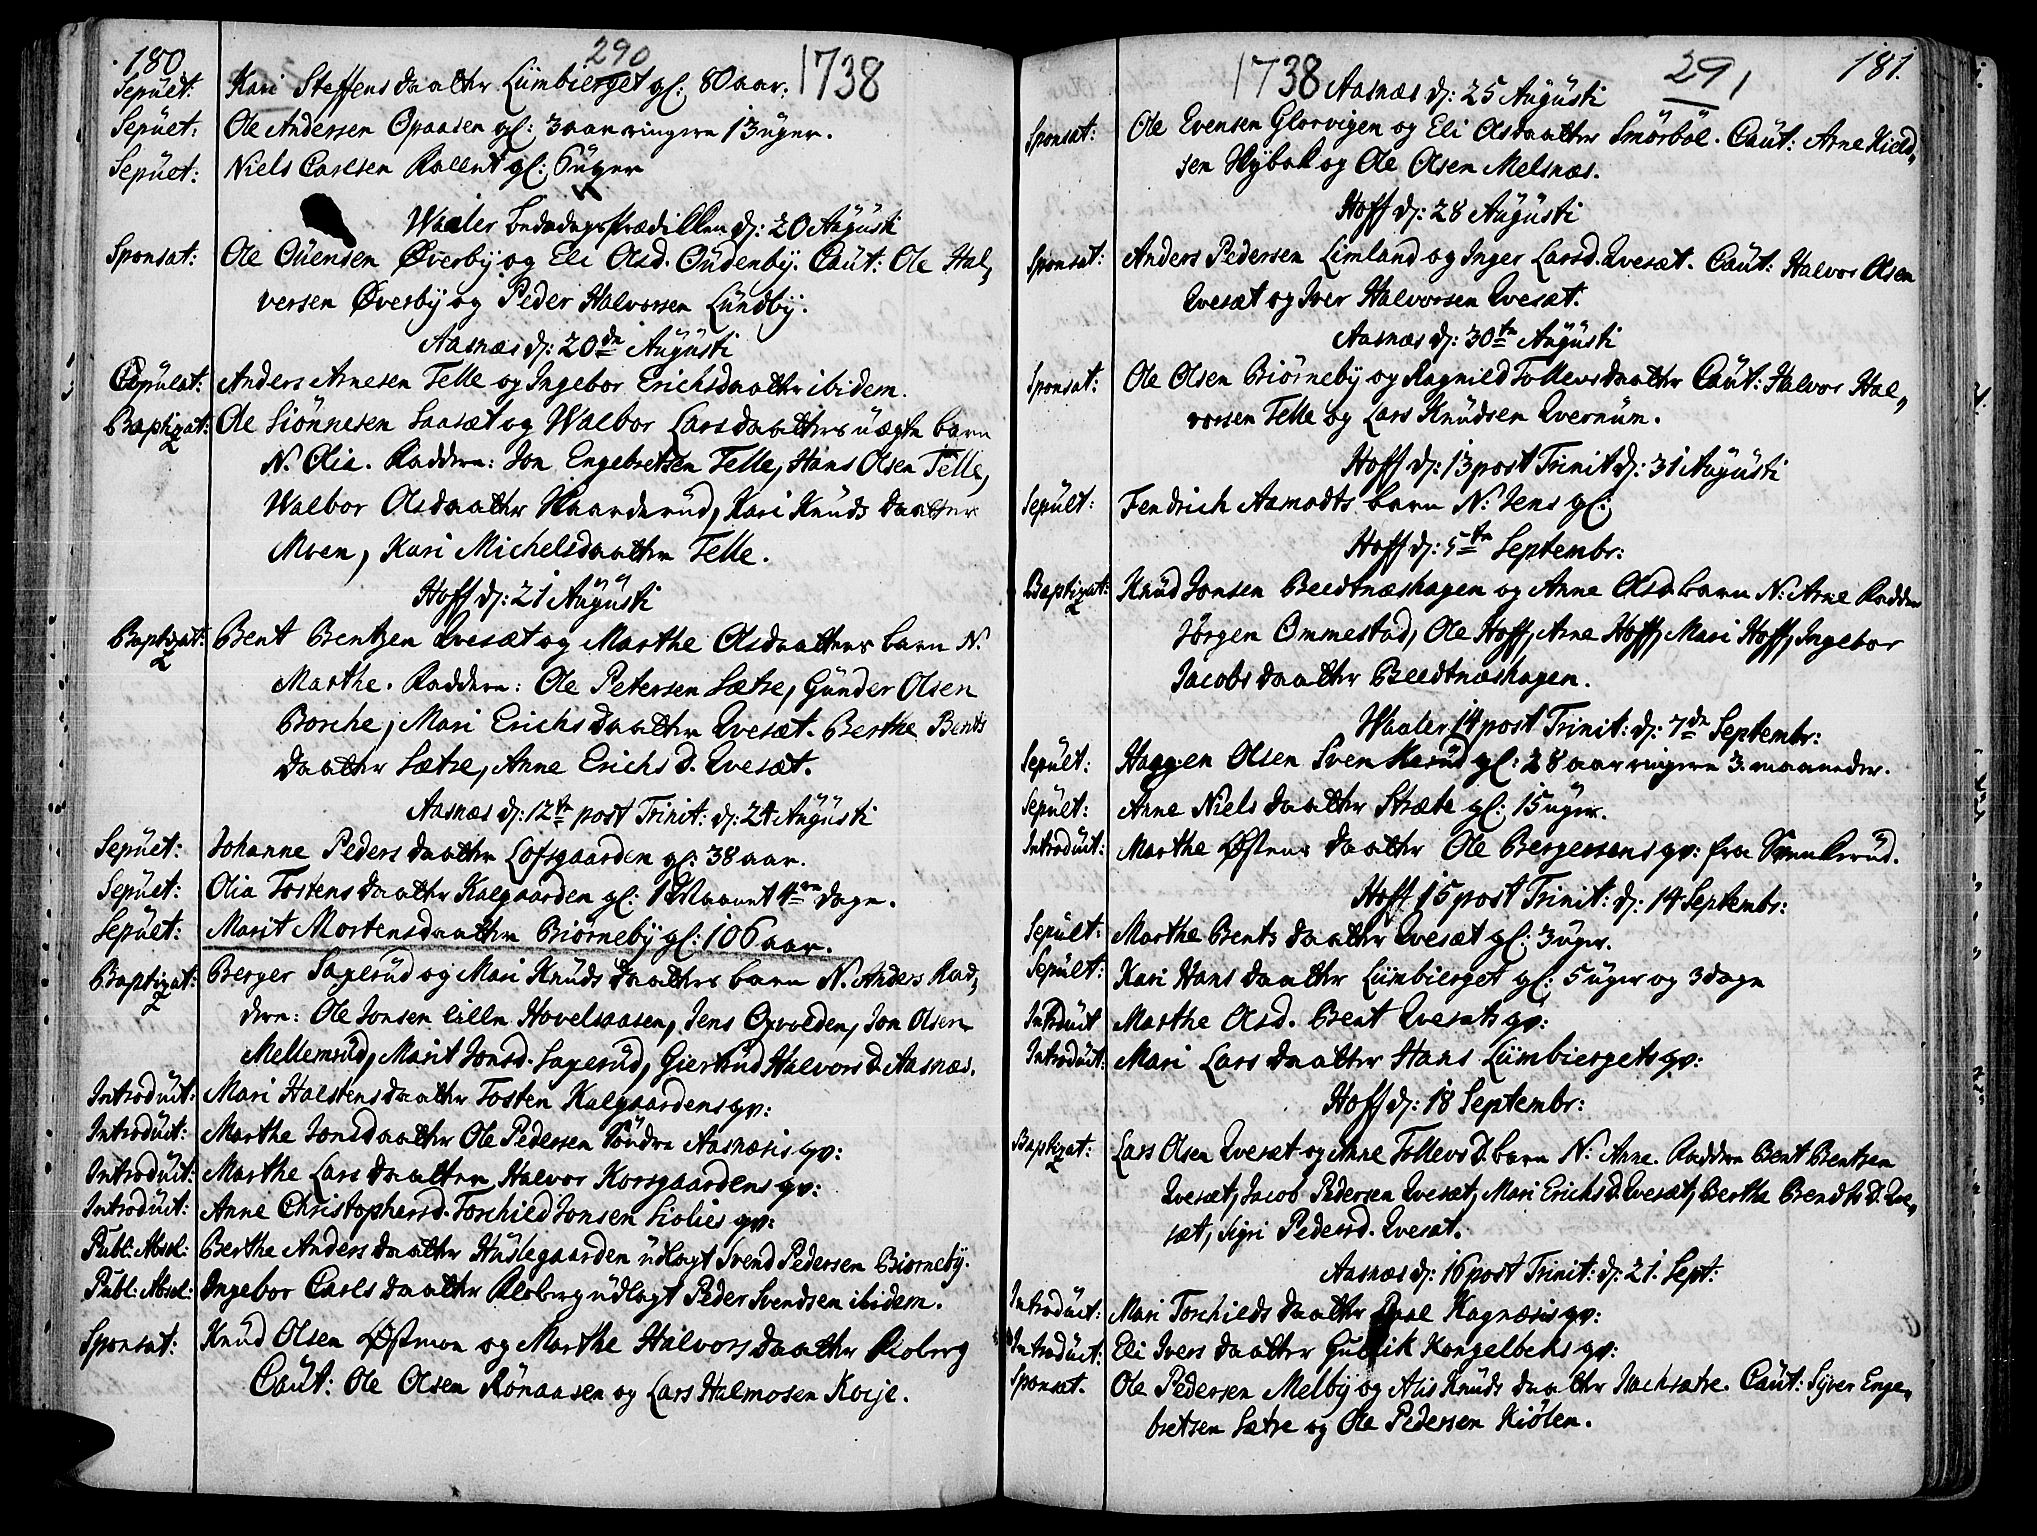 180 290 1738
Sepult: Kari Steffensdaatter Lümbierget gl: 80 aar.
Sepult: Ole Andersen Opaasen gl: 3 aar ringere 13 üger.
Sepult: Niels Carlsen gl: 6 üger
Waaler d: 20 Augüsti
Sponsat: Ole Øverby og Eli Olsd. Oüdenby. Caüt: Ole Hal„
versen Øverby og Peder Halvorsen Lündby.
Aasnæs d: 20de Aügüsti
Copulat: Anders Arnesen Telle og Ingebor Erichsdaatter ibidem.
Baptizat: Ole Siønnesen Saasæt og Walbor Larsdaatters üægte barn
N. Olia. Faddere: Jon Engebretsen Telle, Hans Olsen Telle,
Walbor Olsdaatter Haarderüd, Kari Knüdsdaatter
Moen, Kari Michelsdaatter Telle.
Hoff d: 21 Aügüsti
Baptizat: Bent Bentzen Qvesæt og Marthe Olsdaatters barn N.
Marthe. Faddere: Ole Petersen Sætre, Günder Olsen
Borche, Mari Erichsdaatter Qvesæt. Berthe Bents
daatter Sætre, Anne Erichsd. Qvesæt.
Aasnæs d: 12te post Trinit: d: 24 Aügüsti
Sepült: Johanne Pedersdaatter Lofsgaarden gl: 38 aar.
Sepült: Olia Tostensdaatter Kalgaarden gl: dage.
Sepült: Marit Mortensdaatter Biørneby gl: 106 aar.
Baptizat: Berger Sagerüd og Mari Knüdsdaatters barn N. Anders Fad„
dere: Ole Jonsen lille Hovelsaasen, Jens Opvolden, Jon Olsen
Mellemrüd, Marit Jonsd. Sagerüd, Giertrüd Halvorsd. Aasnæs.
Introdüit: Mari Halstensdaatter Tosten Kalgaardens qv:
Introdüit: Marthe Jonsdaatter Ole Pedersen Søndre Aasnæsis qv:
Introdüit: Marthe Larsdaatter Halvor Korsgaardens qv:
Introdüit: Anne Christophersd. Torchild Jonsen Liolies qv:
Publ: Absol: Berthe Andersdaatter Hüslegaarden üdlagt Svend Pedersen Biørneby.
Publ: Absol: Ingebor Carlsdaatter Kloberg üdlagt Peder Svendsen ibidem.
Sponsat: Knüd Olsen Østmoe og Marthe Halvorsdaatter Kloberg
Caüt: Ole Olsen Rønaasen og Lars Halmosen Koije.
1738 291 181.
Aasnæs d: 25 Aügüsti
Sponsat: Ole Evensen Glorvigen og Eli Olsdaatter Smørbøl. Caüt: Arne Kield„
sen Nybak og Ole Olsen Melsnæs.
Hoff d: 28 Aügüsti
Sponsat: Anders Pedersen Limland og Inger Larsd. Qvesæt. Caüt: Halvor Olsen
Qvesæt og Iver Halvorsen Qvesæt.
Aasnæs d: 30te Aügüsti
Sponsat: Ole Olsen Biørneby og Ragnild Tollevsdaatter Caüt: Halvor Hal„
vorsen Telle og Lars Knüdsen Qvernüm.
Hoff d: 13 post Trinit d: 31 Aügüsti
Sepült: Fendrich Aamodts barn N: Jens gl:
Hoff d: 5te Septembr:
Baptizat: Knüd Jonsen Beedtnæshagen og Anne Olsd. barn N: Arne Faddere
Jørgen Ommestad, Ole Hoff, Arne Hoff, Mari Hoff, Ingebor
Jacobsdaatter Beedtnæshagen.
Waaler 14 post Trinit: d: 7de Septembr:
Sepült: Haagen Olsen Svenkerüd gl: 28 aar ringere 3 maaneder.
Sepült: Anne Nielsdaatter Stræte gl: 15 üger.
Introdüit: Marthe Østensdaatter Ole Bergersens qv: fra Svenkerüd.
Hoff 15 post Trinit: d: 14 Septembr:
Sepült: Marthe Bentsdaatter Qvesæt gl: 3 üger.
Sepült: Kari Hansdaatter Lümbierget gl: 5 üger og 3 dage
Introdüit Marthe Olsd. Bent Qvesæts qv:
Introdüit: Mari Larsdaatter Hans Lümbiergets qv:
Hoff d: 18 Septembr:
Baptizat: Lars Olsen Qvesæt og Anne Tollevsd. barn N: Anne. Faddere Bent Bentzen
Qvesæt, Jacob Pedersen Qvesæt, Mari Erichsd. Qvesæt, Berthe Brendtsd. Qve„
sæt, Sigri Pedersd. Qvesæt.
Aasnæs d: 16 post Trinit: d: 21. Sept:
Introdüit: Mari Torchildsdaatter Poel Kagnæsis qv:
Introdüit: Eli Iversdaatter Gullik Kongelbeks qv:
Sponsat. Ole Pedersen Melby og Alis Knüdsdaatter Nachsætre. Caüt: Syver Enge„
bretsen Sætre og Ole Pedersen Kiølen.